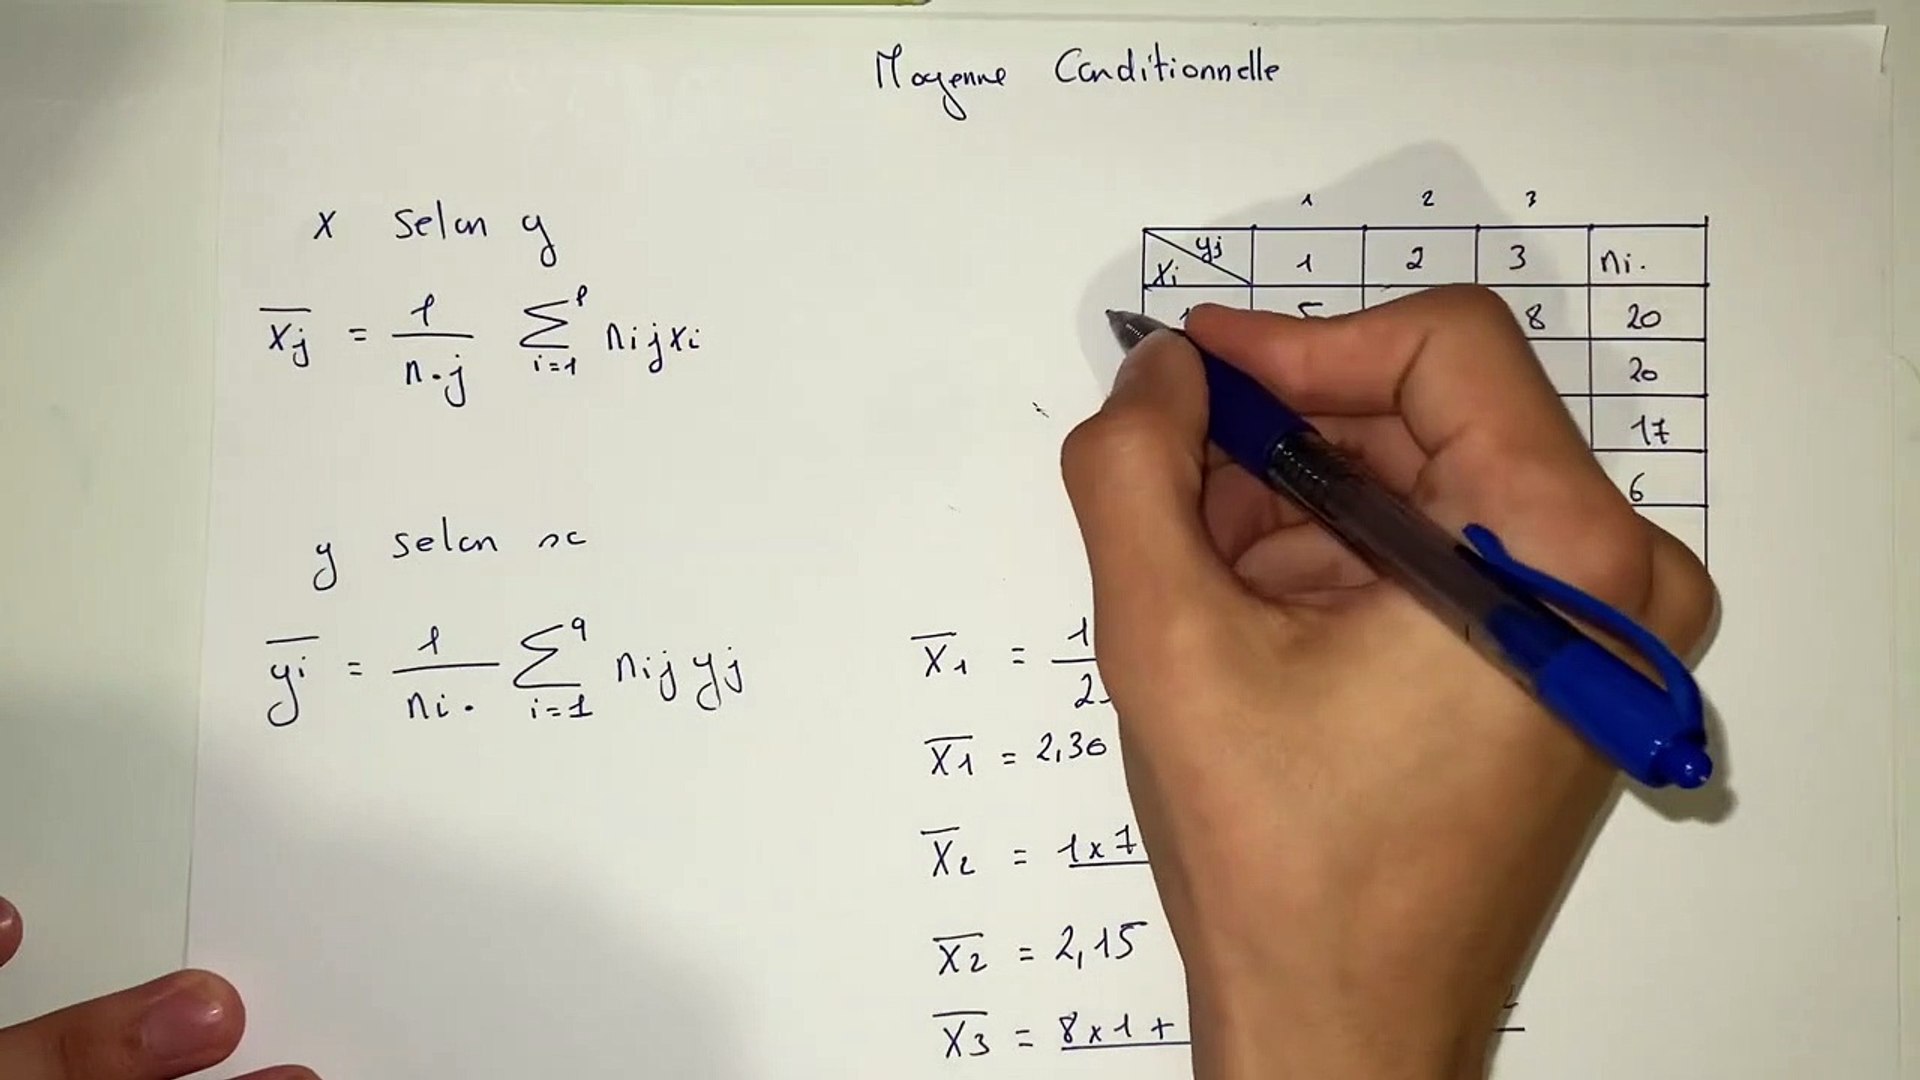 Moyenne Conditionnelle
x selon y
x̄j = 1 / n.j Σ i=1 p nij xi
y selon x
ȳi = 1 / ni. Σ i=1 q nij yj
1 2 3
xi yj 1 2 3 ni.
5 8 20
20
17
6
x̄1 = 1
x̄1 = 2,30
x̄2 = 1x7
x̄2 = 2,15
x̄3 = 8x1 +